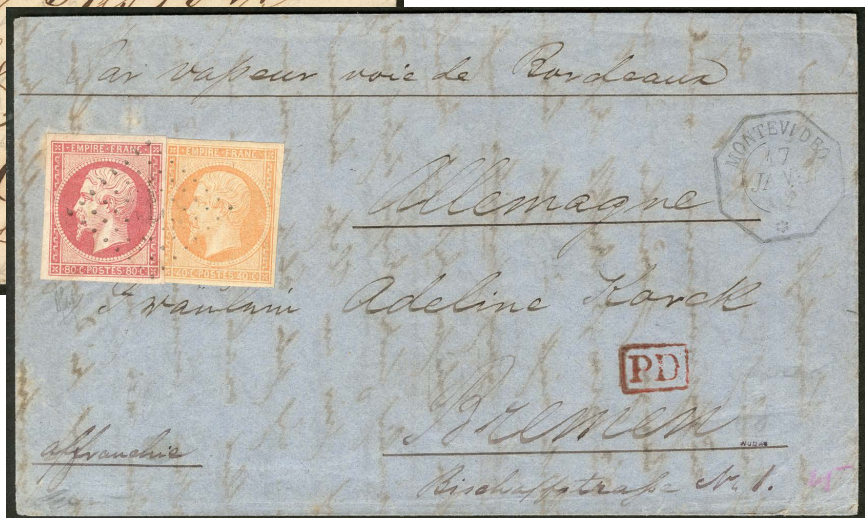 Par vapeur voie de Bordeaux
EMPIRE FRANC
80 C POSTES 80 C
EMPIRE FRANC
40 C POSTES 40 C
MONTEVIDEO
17
JANV
Allemagne
Fraulein Adeline Korck
PD
Bremen
affranchie
Bischoffstraße No 1.